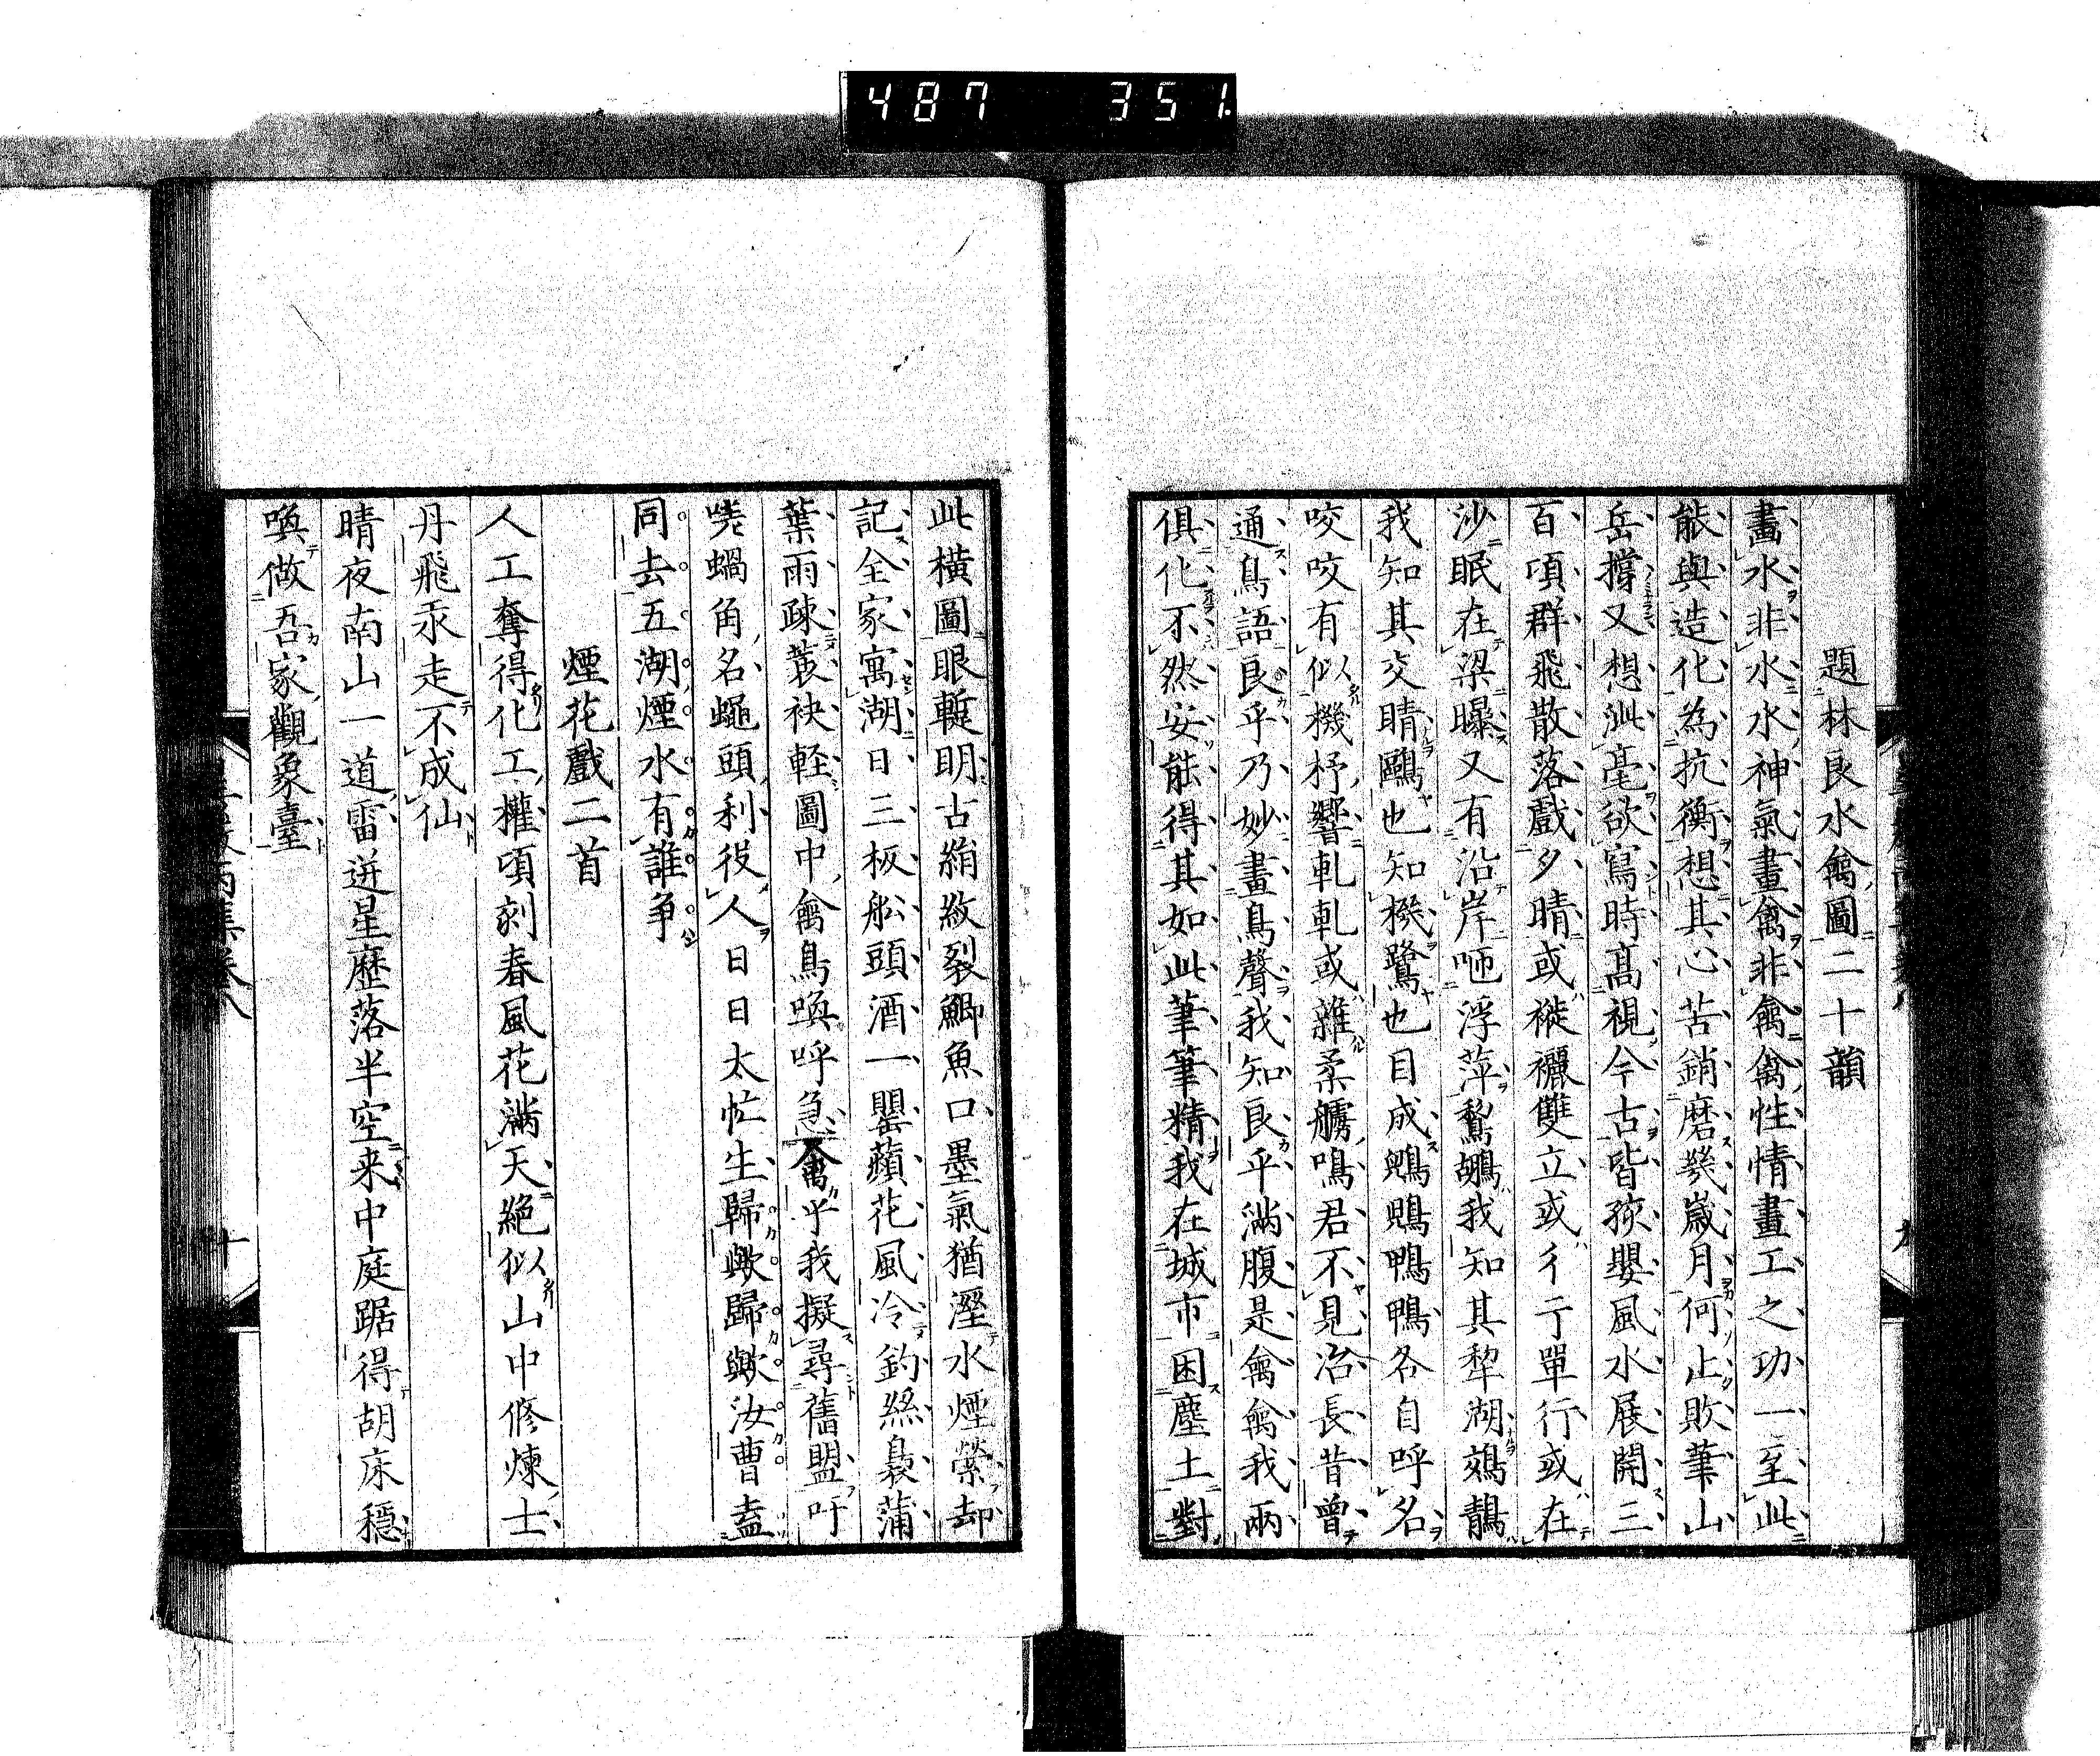 487 351
題林良水禽圖二十韻
畫水非水水神氣畫禽非禽禽性情畫工之功一至此
能與造化為抗衡想其心苦銷磨幾歲月何止敗筆山
岳撐又想泚毫欲寫時高視今古皆孩嬰風水展開三
百頃群飛散落戲夕晴或褷襹雙立或彳亍單行或在
沙眠在梁曝又有沿岸咂浮萍鶩鶘我知其犂湖鵁鶄
我知其交睛鷗也知機鷺也目成鶂鶂鴨鴨各自呼名
咬咬有似機杼響軋軋或雜柔艣鳴君不見冶長昔曾
通鳥語良乎乃妙畫鳥聲我知良乎滿腹是禽禽我兩
俱化不然安能得其如此筆筆精我在城市困塵土對
此橫圖眼蹔明古絹敝裂鯽魚口墨氣猶溼水煙縈却
記全家寓湖日三板舩頭酒一罌蘋花風冷釣絲裊蒲
葉雨疎蓑袂軽圖中禽鳥喚呼急禽乎我擬尋舊盟吁
嗟蝸角名蠅頭利役人日日太忙生歸歟歸歟汝曹盍
同去五湖煙水有誰争
煙花戲二首
人工奪得化工權頃刻春風花滿天絶似山中修煉士
丹飛汞走不成仙
晴夜南山一道雷迸星歷落半空来中庭踞得胡床穩
喚做吾家觀象臺
十